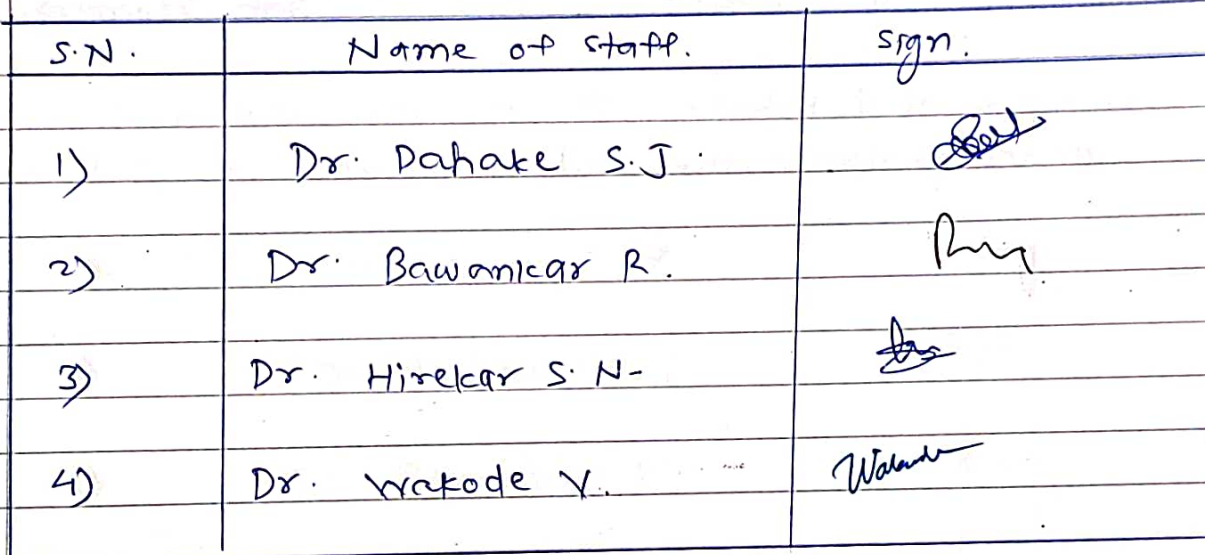 S.N. Name of staff. Sign.
1) Dr. Dahake S.J.
2) Dr. Bawankar R.
3) Dr. Hirekar S. N-
4) Dr. Wakode V.